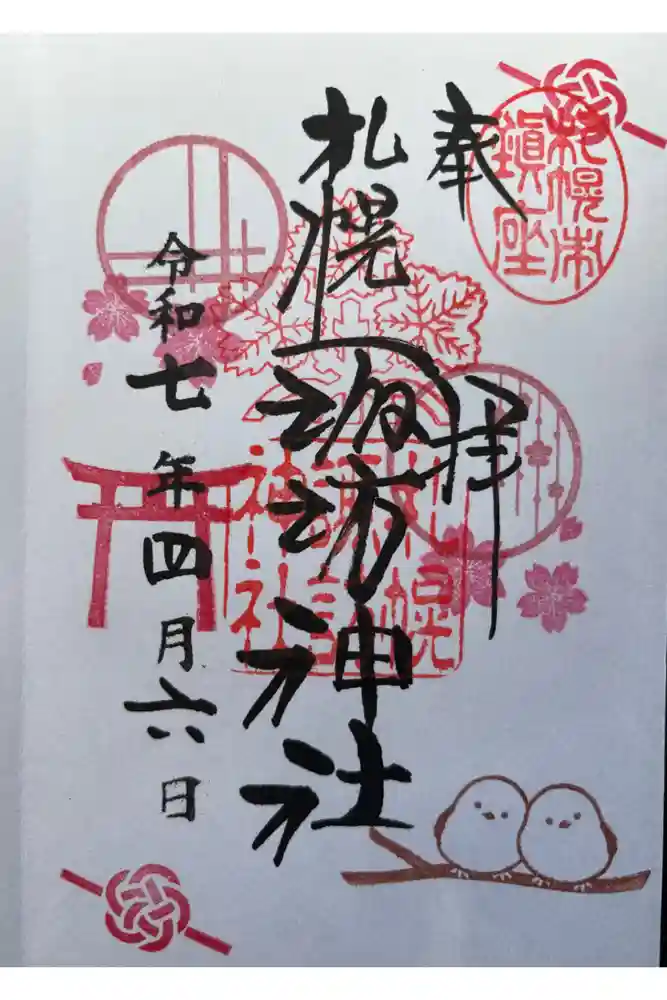 奉拝
札幌市
鎮座
札幌諏訪神社
札幌
諏訪
神社
令和七年四月六日